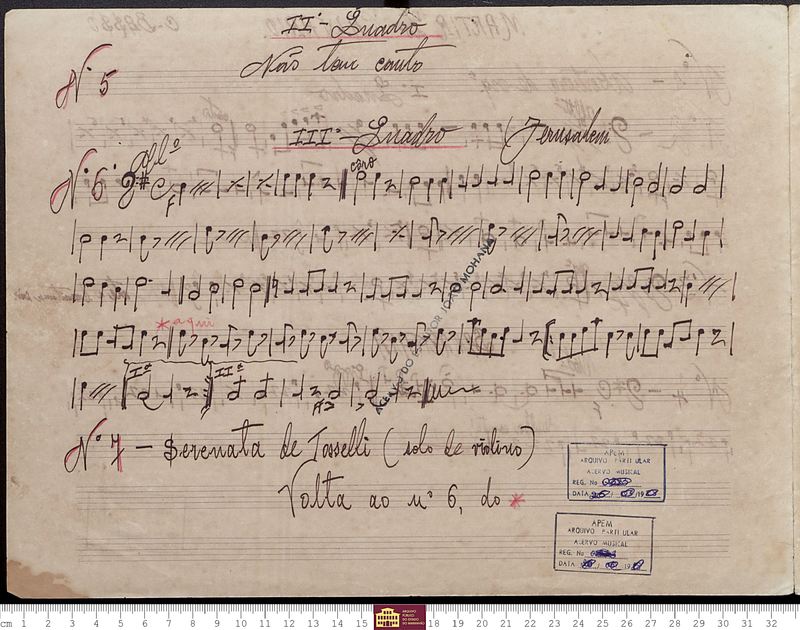 IIº - Quadro
Nº 5
Não tem canto
IIIº - Quadro (Jerusalem
Nº 6 Allº
côro
*aqui
Iª IIª
Nº 7 - Serenata de Tosselli (solo de violino)
Volta ao nº 6, do *
ACERVO DO
JOÃO MOHANA
APEM
ARQUIVO PARTICULAR
ACERVO MUSICAL
REG. No
DATA
APEM
ARQUIVO PARTICULAR
ACERVO MUSICAL
REG. No
DATA
ARQUIVO
PÚBLICO
DO ESTADO
DO MARANHÃO
cm 1 2 3 4 5 6 7 8 9 10 11 12 13 14 15 18 19 20 21 22 23 24 25 26 27 28 29 30 31 32